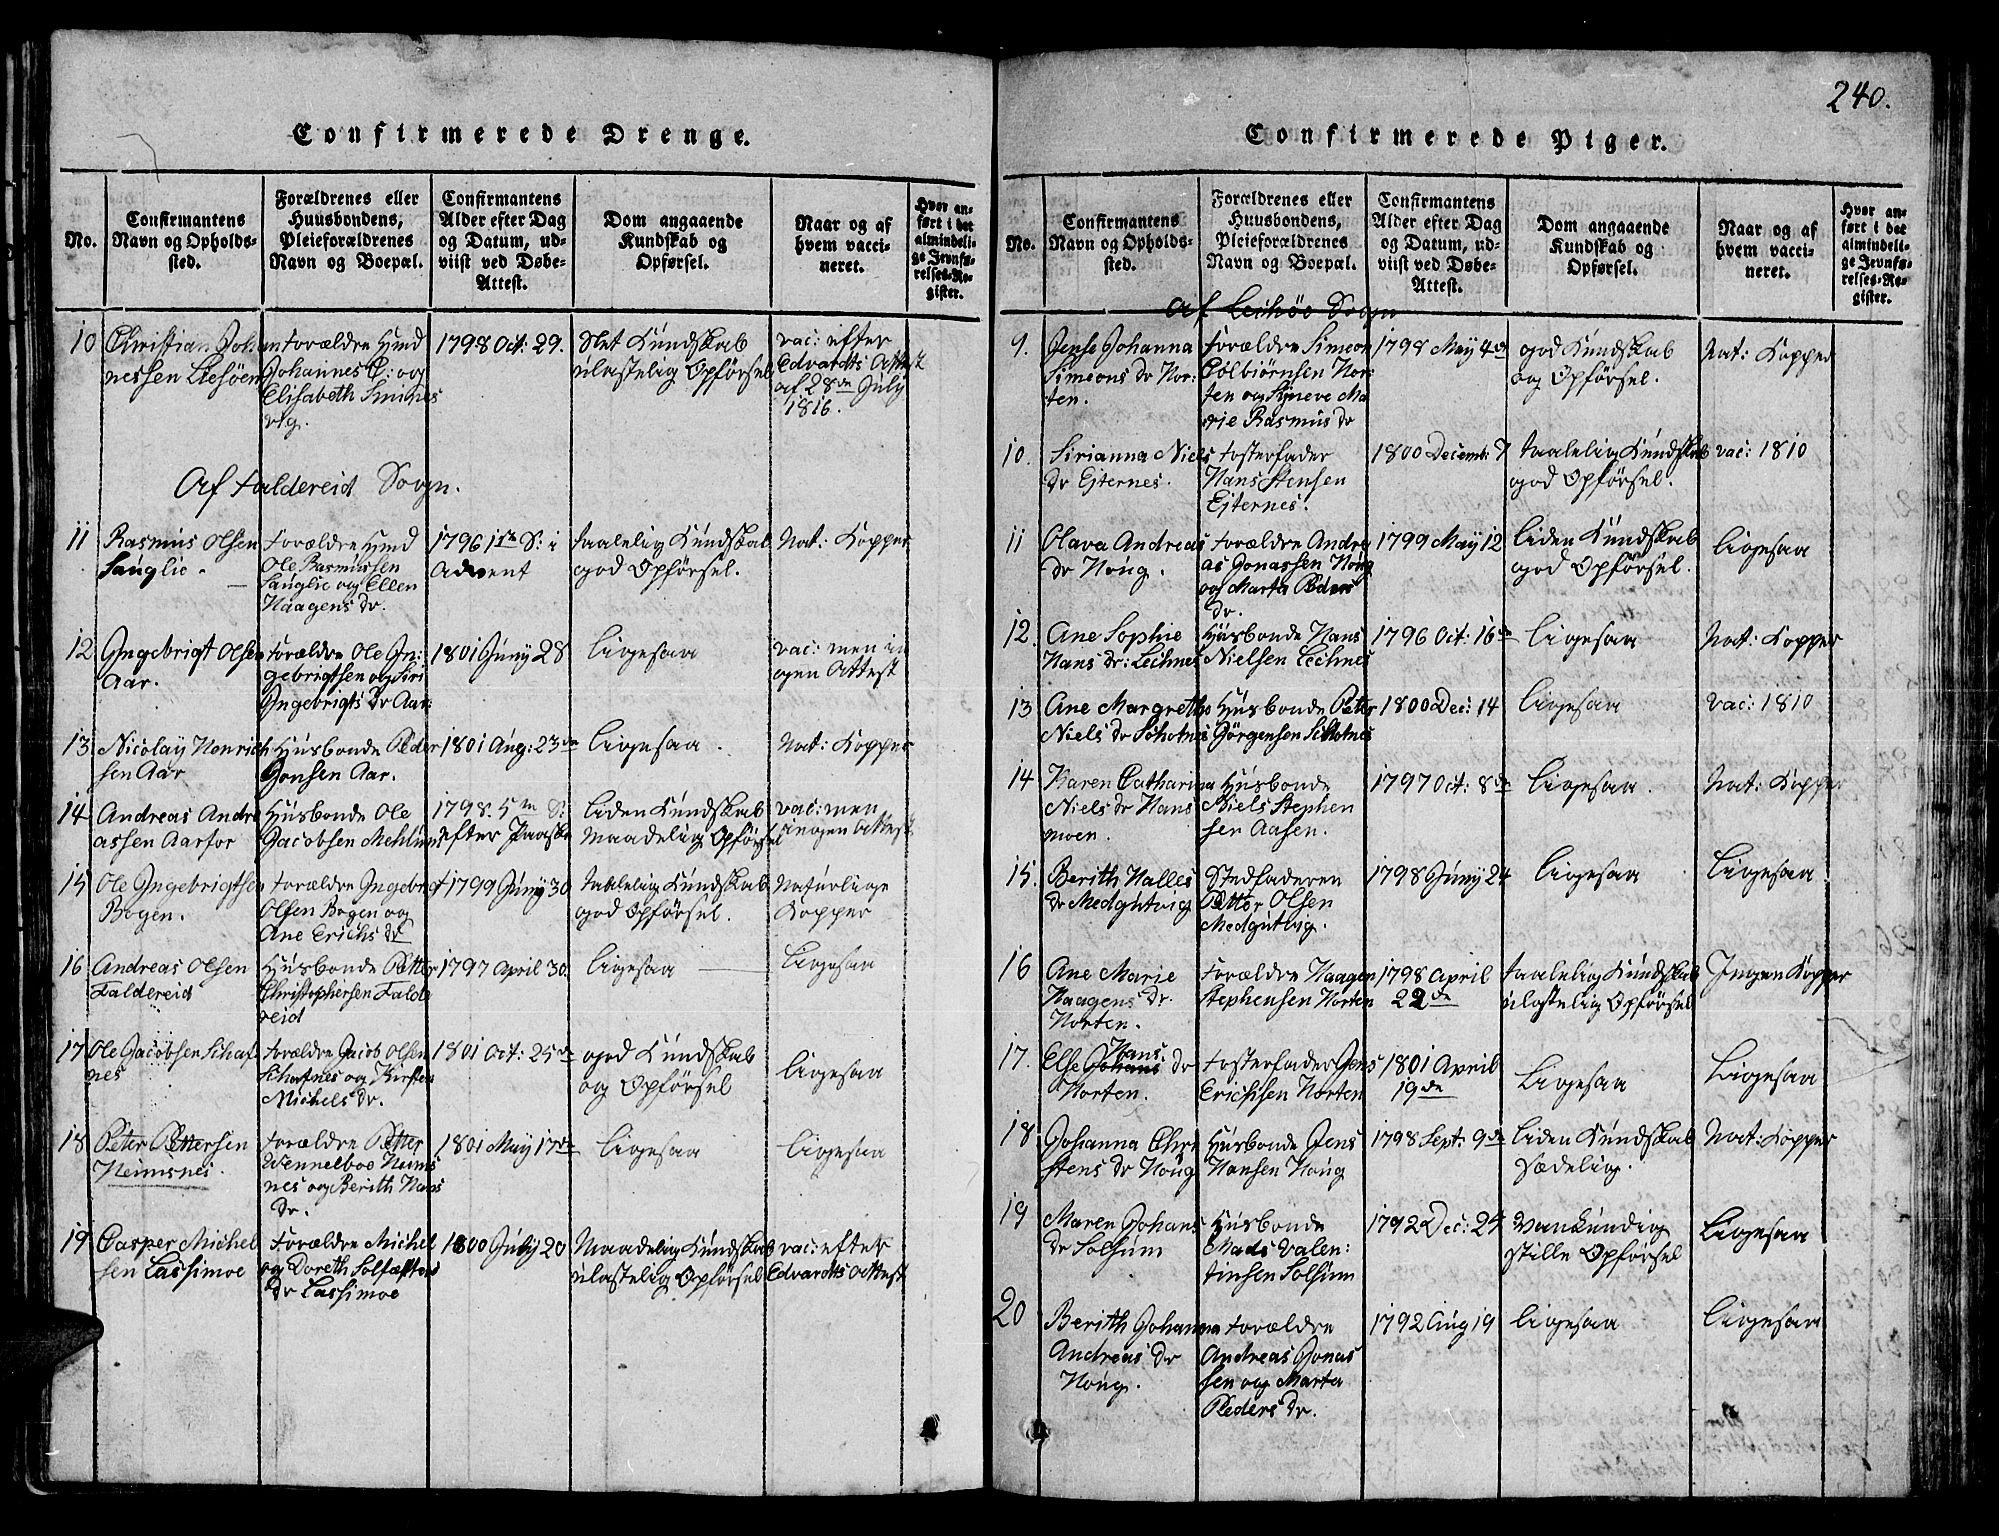 Confirmerede Drenge.
No.
Confirmantens
Navn og Opholds-
sted.
Forældrenes eller
Huusbondens,
Pleieforældrenes
Navn og Boepæl.
Confirmantens
Alder efter Dag
og Datum, ud-
viist ved Døbe-
Attest.
Dom angaaende
Kundskab og
Opførsel.
Naar og af
hvem vacci-
neret.
Hvor an-
ført i det
almindeli-
ge Jevnfø-
relses-Re-
gister.
10 Christian Johan
nessen
Forældre
Johannes C: og
Elisabeth
1798 Oct: 29.
Slet Kundskab
ulastelig Opførsel
vac: efter
Edvardts Attest
af 28de July
1816.
Af Foldereid Sogn.
11 Rasmus Olsen
Sauglie.
Forældre
Ole Rasmussen
Sauglie og Ellen
Haagens dr.
1796 1ste S: i
Advent
taalelig Kundskab
god Opførsel.
Nat: Kopper
12 Ingebrigt Olsen
Aar.
Forældre Ole In:
gebrigtsen og Siri
Ingebrigts Dr Aar:
1801 Juny 28
Ligesaa
vac: men in
gen Attest
13 Nicolay Henrich
sen Aar
Husbonde Peder
Jonsen Aar.
1801 Aug: 23de
Ligesaa.
Nat: Kopper
14 Andreas Andre
assen Aarfor
Husbonde Ole
Jacobsen
1798. 5te S:
efter Paaske
Liden Kundskab
Maadelig Opførsel
vac: men
ingen Attest
15 Ole Ingebrigtsen
Bogen.
Forældre Ingebrigt
Olsen Bogen og
Ane Erichs dr
1799 Juny 30
taalelig Kundskab
god Opførsel.
Naturlige
Kopper
16 Andreas Olsen
Foldereid
Husbonde Petter
Christophersen Folde
reid
1797 April 30.
Ligesaa
Ligesaa
17 Ole Jacobsen
nes
Forældre Jacob Olsen
og Kirsten
Michels dr.
1801 Oct: 25de
god Kundskab
og Opførsel
Ligesaa
18 Peter Pettersen
Heimsnes.
Forældre Petter
Wennelboe Heims
nes og Berith Hans
Dr.
1801 May 17de
Ligesaa
Ligesaa
19 Casper Michel
sen Lassimoe
Forældre Michel
og Doreth
dr Lassimoe
1800 July 20
Maadelig Kundskab
ulastelig Opførsel
vac: efter
Edvardts Attest
240.
Confirmerede Piger.
No.
Confirmantens
Navn og Opholds-
sted.
Forældrenes eller
Huusbondens,
Pleieforældrenes
Navn og Boepæl.
Confirmantens
Alder efter Dag
og Datum, ud-
viist ved Døbe-
Attest.
Dom angaaende
Kundskab og
Opførsel.
Naar og af
hvem vacci-
neret.
Hvor an-
ført i det
almindeli-
ge Jevnfø-
relses-Re-
gister.
Af Lechöe Sogn
9. Jense Johanna
Simeons dr Hor:
ten.
Forældre Simeon
Colbiörnsen Hor:
ten og Syneve Ma
rie Rasmus dr
1798 May 4de
god Kundskab
og Opførsel.
Nat: Kopper
10. Sirianna Niels
dr Ejternes.
Fosterfader
Hans Stensen
Ejternes.
1800 Decemb: 7
taalelig Kundskab
god Opførsel.
vac: 1810
11 Olava Andreas
dr Houg.
Forældre Andre
as Jonassen Houg
og Marta Peders
dr.
1799 May 12
Liden Kundskab
god Opførsel.
Ligesaa
12. Ane Sophie
Hans dr: Lechnes
Husbonde Hans
Nielsen Lechnes
1796 Oct: 16de
Ligesaa
Nat: Kopper
13 Ane Margrethe
Niels dr
Husbonde Petter
Jörgensen
1800 Dec: 14
Ligesaa
vac: 1810
14 Karen Catharina
Niels dr Hans
moen.
Husbonde
Niels Stephen
sen Aasen.
1797 Oct: 8de
Ligesaa.
Nat: Kopper
15. Berith Halles
dr Medgutvig
Stedfaderen
Petter Olsen
Medgutvig.
1798 Juny 24
Ligesaa
Ligesaa
16 Ane Marie
Haagens dr.
Horten.
Forældre Haagen
Stephensen Horten
1798 April
22de
taalelig Kundskab
ulastelig Opførsel
Ingen Kopper
17. Else Johans Hans dr
Horten.
Fosterfader Jens
Erichsen Horten
1801 April
19de
Ligesaa
Ligesaa
18 Johanna Chri
stens dr Houg
Husbonde Jens
Hansen Houg
1798 Sept: 9de
Liden Kundskab
Sædelig.
Nat: Kopper
19 Maren Johans
dr Solsum
Husbonde
Mads Valen:
tinsen Solsum
1792 Dec: 24
Vankundig
stille Opførsel
Ligesaa
20 Berith Johanna
Andreas dr
Houg.
Forældre
Andreas Jonas
sen og Marta
Peders dr.
1792 Aug 19
Ligesaa
Ligesaa